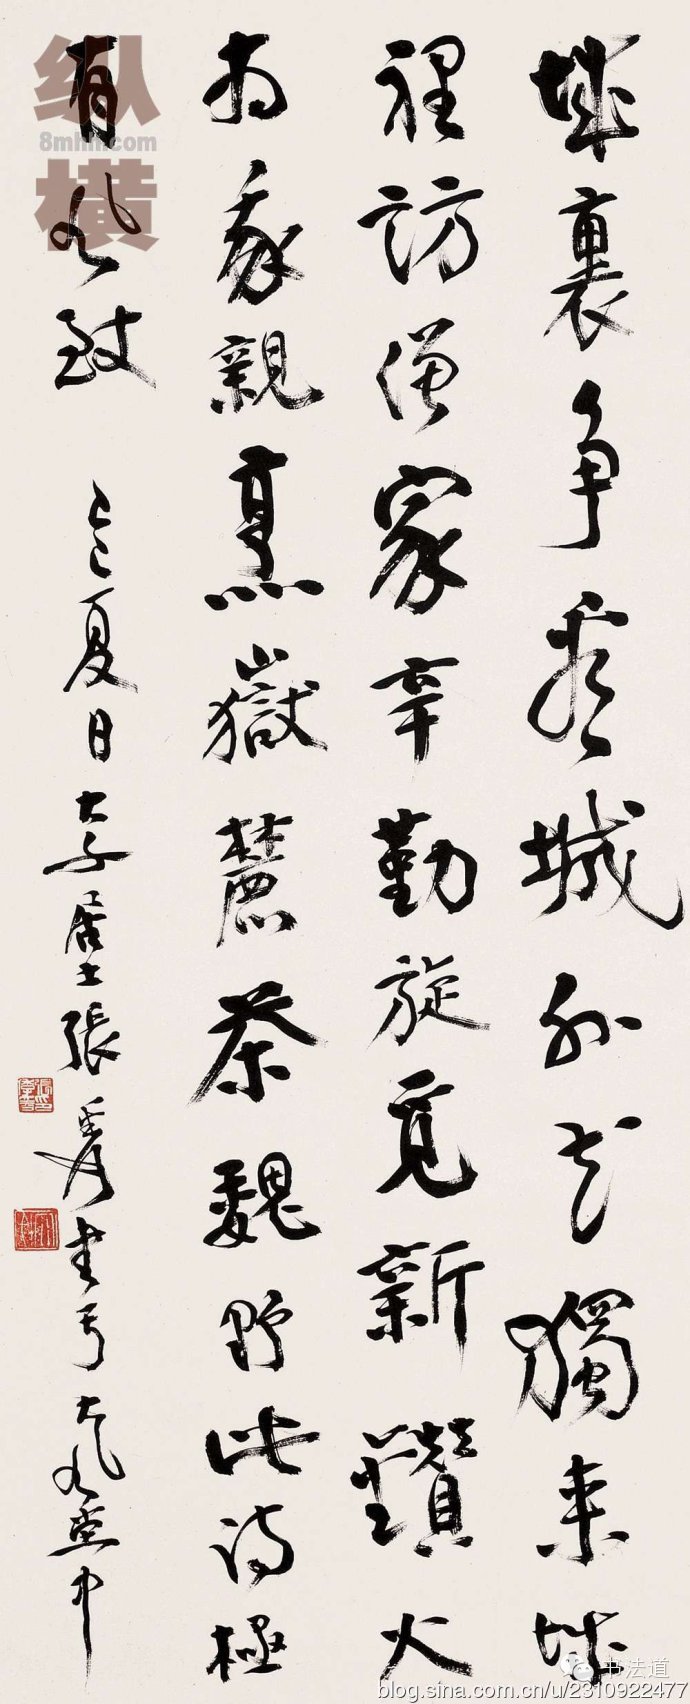 城裏争看城外花獨来城
裡訪僧家辛勤旋覓新鑽火
为我親烹嶽麓茶魏野此詩極
有風致
乙夏日大千居士張爰书于大風堂中
纵横
8mhh.com
书法道
blog.sina.com.cn/u/2310922477